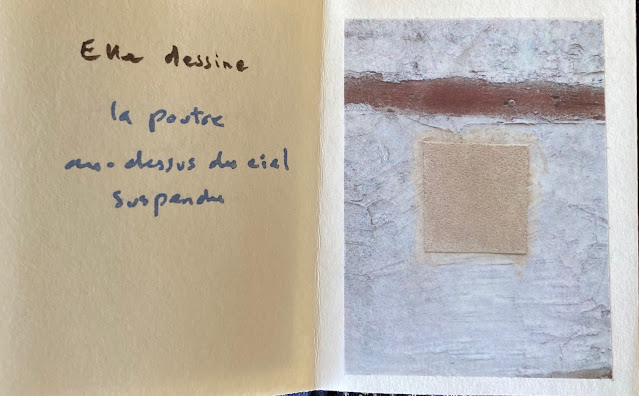 Elle dessine
la poutre
au-dessus du ciel
suspendu